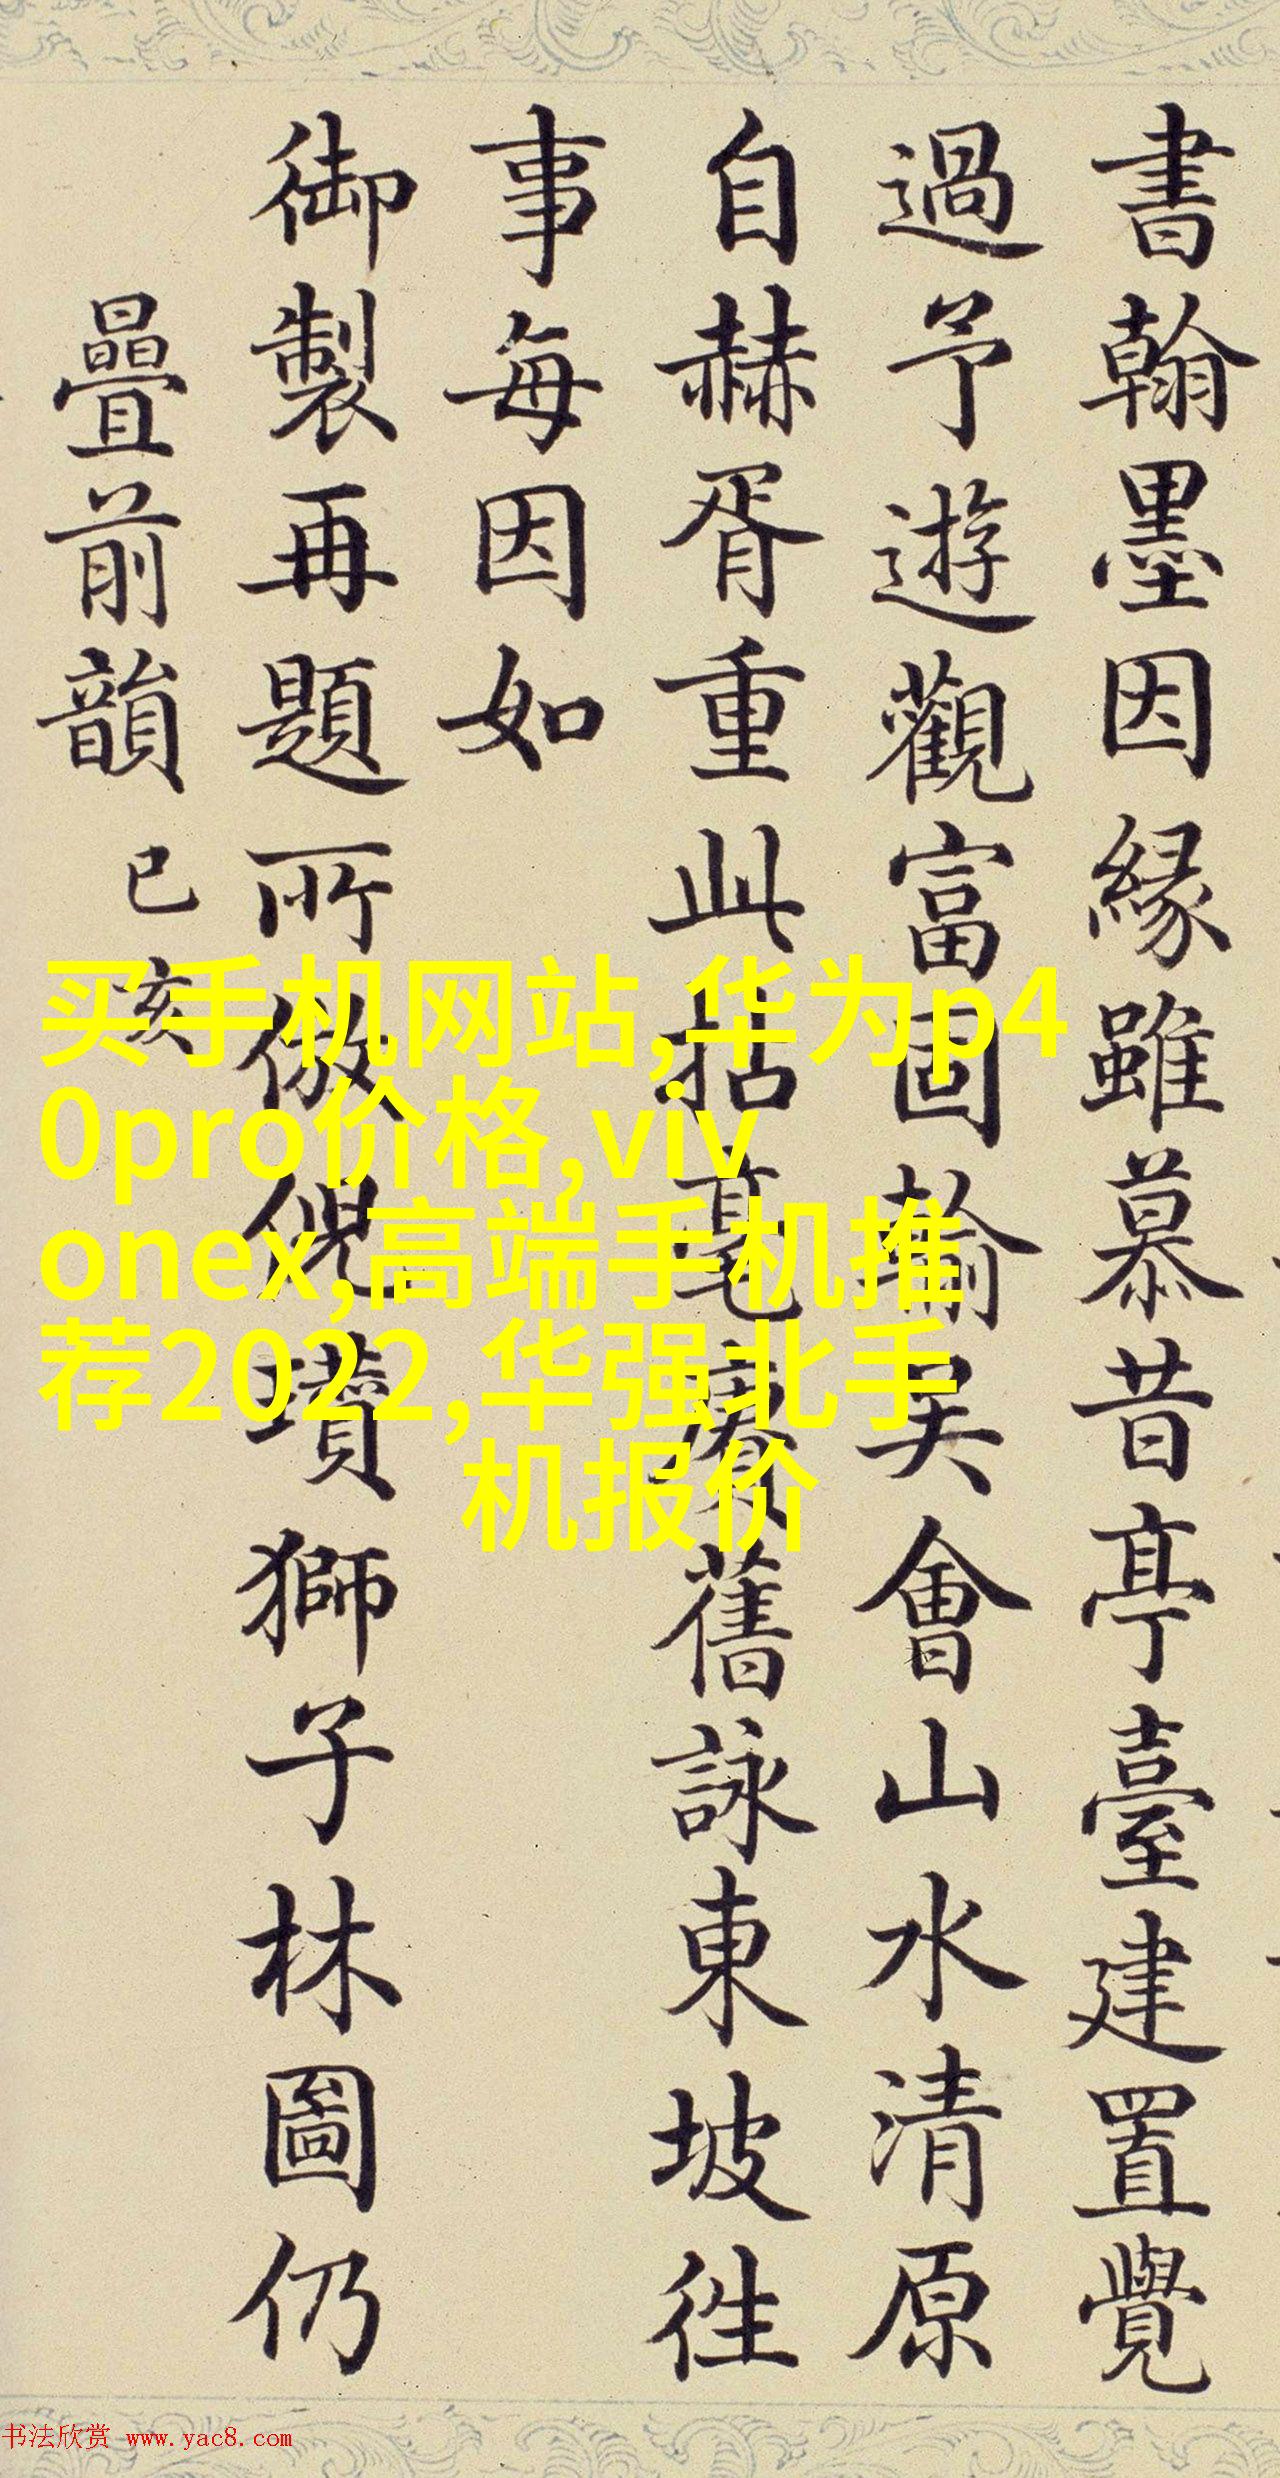 書翰墨因緣雖慕昔亭臺建置覺
過予遊觀富固輸吳會山水清原
自赫胥重此拈毫賡舊詠東坡徃
事每因如
御製再題所倣倪瓚獅子林圖仍
疊前韻 己亥
买手机网站,华为p4
0pro价格,viv
onex,高端手机推
荐2022,华强北手
机报价
书法欣赏 www.yac8.com